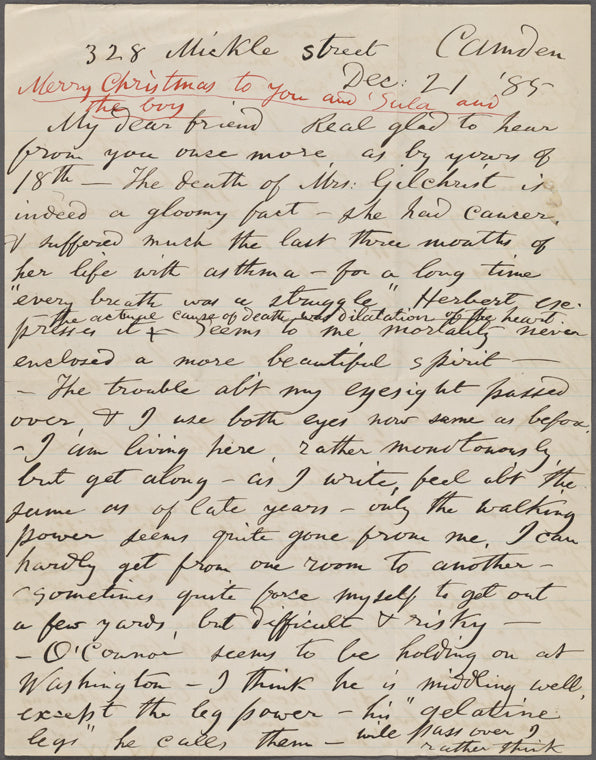 328 Mickle street Camden
Dec: 21 '85
Merry Christmas to you and 'Sula and
the boy
My dear friend Real glad to hear
from you once more, as by yours of
18th — The death of Mrs: Gilchrist is
indeed a gloomy fact – she had cancer,
& suffered much the last three months of
her life with asthma – for a long time
"every breath was a struggle" Herbert ex-
the actual cause of death was dilatation of the heart
presses it + – Seems to me mortality never
enclosed a more beautiful spirit —
– The trouble ab't my eyesight passed
over, & I use both eyes now same as before.
– I am living here, rather monotonously,
but get along – as I write, feel abt the
same as of late years – only the walking
power seems quite gone from me, I can
hardly get from one room to another –
– sometimes quite force myself to get out
a few yards, but difficult & risky —
– O'Connor seems to be holding on at
Washington – I think he is middling well,
except the leg power – his "gelatine
legs" he calls them – will pass over I
rather think